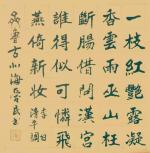 一枝紅艷露凝
香雲雨巫山枉
斷腸借問漢宮
誰得似可憐飛
燕倚新妝 李白清平調